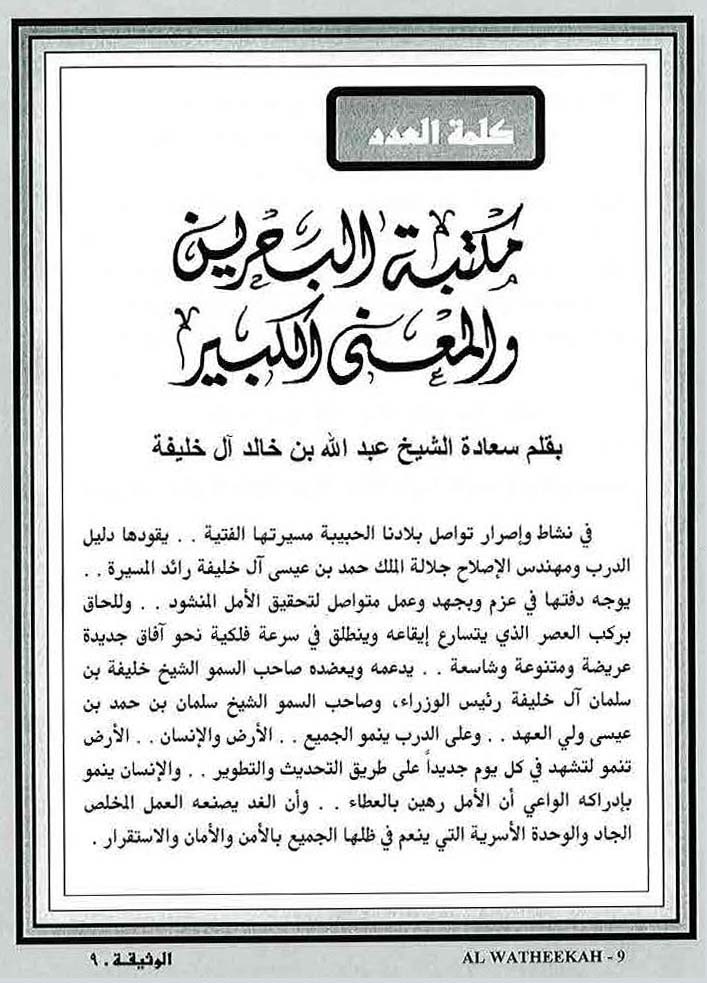 كلمة العدد
مكتبة البحرين
والمعنى الكبير
بقلم سعادة الشيخ عبد الله بن خالد آل خليفة
في نشاط وإصرار تواصل بلادنا الحبيبة مسيرتها الفتية . . يقودها دليل
الدرب ومهندس الإصلاح جلالة الملك حمد بن عيسى آل خليفة رائد المسيرة . .
يوجه دفتها في عزم وبجهد وعمل متواصل لتحقيق الأمل المنشود . . وللحاق
بركب العصر الذي يتسارع إيقاعه وينطلق في سرعة فلكية نحو آفاق جديدة
عريضة ومتنوعة وشاسعة . . يدعمه ويعضده صاحب السمو الشيخ خليفة بن
سلمان آل خليفة رئيس الوزراء، وصاحب السمو الشيخ سلمان بن حمد بن
عيسى ولي العهد . . وعلى الدرب ينمو الجميع . . الأرض والإنسان . . الأرض
تنمو لتشهد في كل يوم جديداً على طريق التحديث والتطوير . . والإنسان ينمو
بإدراكه الواعي أن الأمل رهين بالعطاء . . وأن الغد يصنعه العمل المخلص
الجاد والوحدة الأسرية التي ينعم في ظلها الجميع بالأمن والأمان والاستقرار .
الوثيقـة . ٩
AL WATHEEKAH - 9